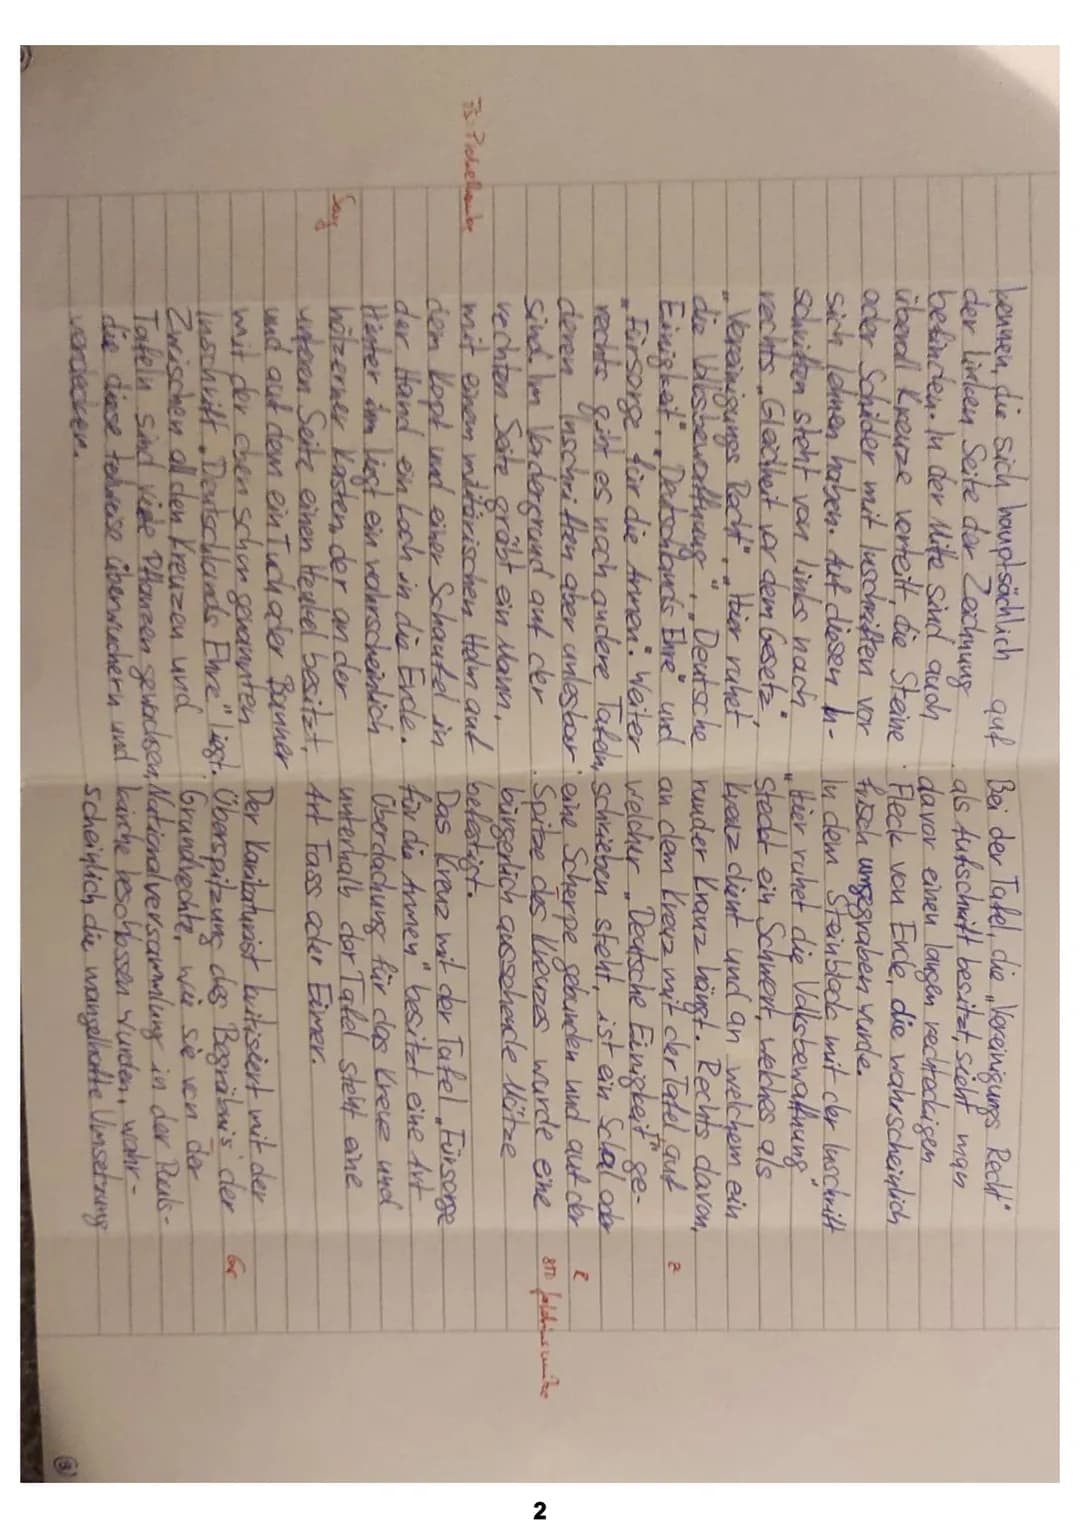 kennen, die sich hauptsächlich auf
der linken Seite der Zeichnung
befinden. In der Mitte sind auch
überall Kreuze verteilt, die Steine
oder Schilder mit Inschriften vor
sich lehnen haben. Auf diesen In-
schriften steht von links nach
rechts „Gleichheit vor dem Gesetz",
„Vereinigungs Recht", „Hier ruhet
die Volksbewaffnung", „Deutsche
Einigkeit", „Deutschlands Ehre" und
„Fürsorge für die Armen". Weiter
rechts gibt es noch andere Tafeln,
deren Inschriften aber unlesbar
sind. Im Vordergrund auf der
rechten Seite gräbt ein Mann,
mit einem militärischen Helm auf
TS: Pickelhaube
dem Kopf und einer Schaufel in
der Hand ein Loch in die Erde.
Hinter ihm liegt ein wahrscheinlich
hölzerner Kasten, der an der
Sarg
unteren Seite einen Henkel besitzt,
und auf dem ein Tuch oder Banner
mit der oben schon genannten
Inschrift „Deutschlands Ehre" liegt.
Zwischen all den Kreuzen und
Tafeln sind viele Pflanzen gewachsen,
die diese teilweise überwuchern und
verdecken.
Bei der Tafel, die „Vereinigungs Recht"
als Aufschrift besitzt, sieht man
davor einen langen rechteckigen
Fleck von Erde, die wahrscheinlich
frisch umgegraben wurde.
In dem Steinblock mit der Inschrift
„Hier ruhet die Volksbewaffnung"
steckt ein Schwert, welches als
Kreuz dient und an welchem ein
runder Kranz hängt. Rechts davon,
an dem Kreuz mit der Tafel, auf
R
welcher „Deutsche Einigkeit" ge-
schrieben steht, ist ein Schal oder
eine Scherpe gebunden und auf der
R
Spitze des Kreuzes wurde eine
bürgerlich aussehende Mütze
befestigt.
Das Kreuz mit der Tafel „Fürsorge
für die Armen" besitzt eine Art
Überdachung für das Kreuz und
unterhalb der Tafel steht eine
Art Fass oder Eimer.
Der Karikaturist kritisiert mit der
Überspitzung des Begräbnis der
Gr
Grundrechte, wie sie von der
Nationalversammlung in der Pauls-
kirche beschlossen wurden, wahr-
scheinlich die mangelhafte Umsetzung
2